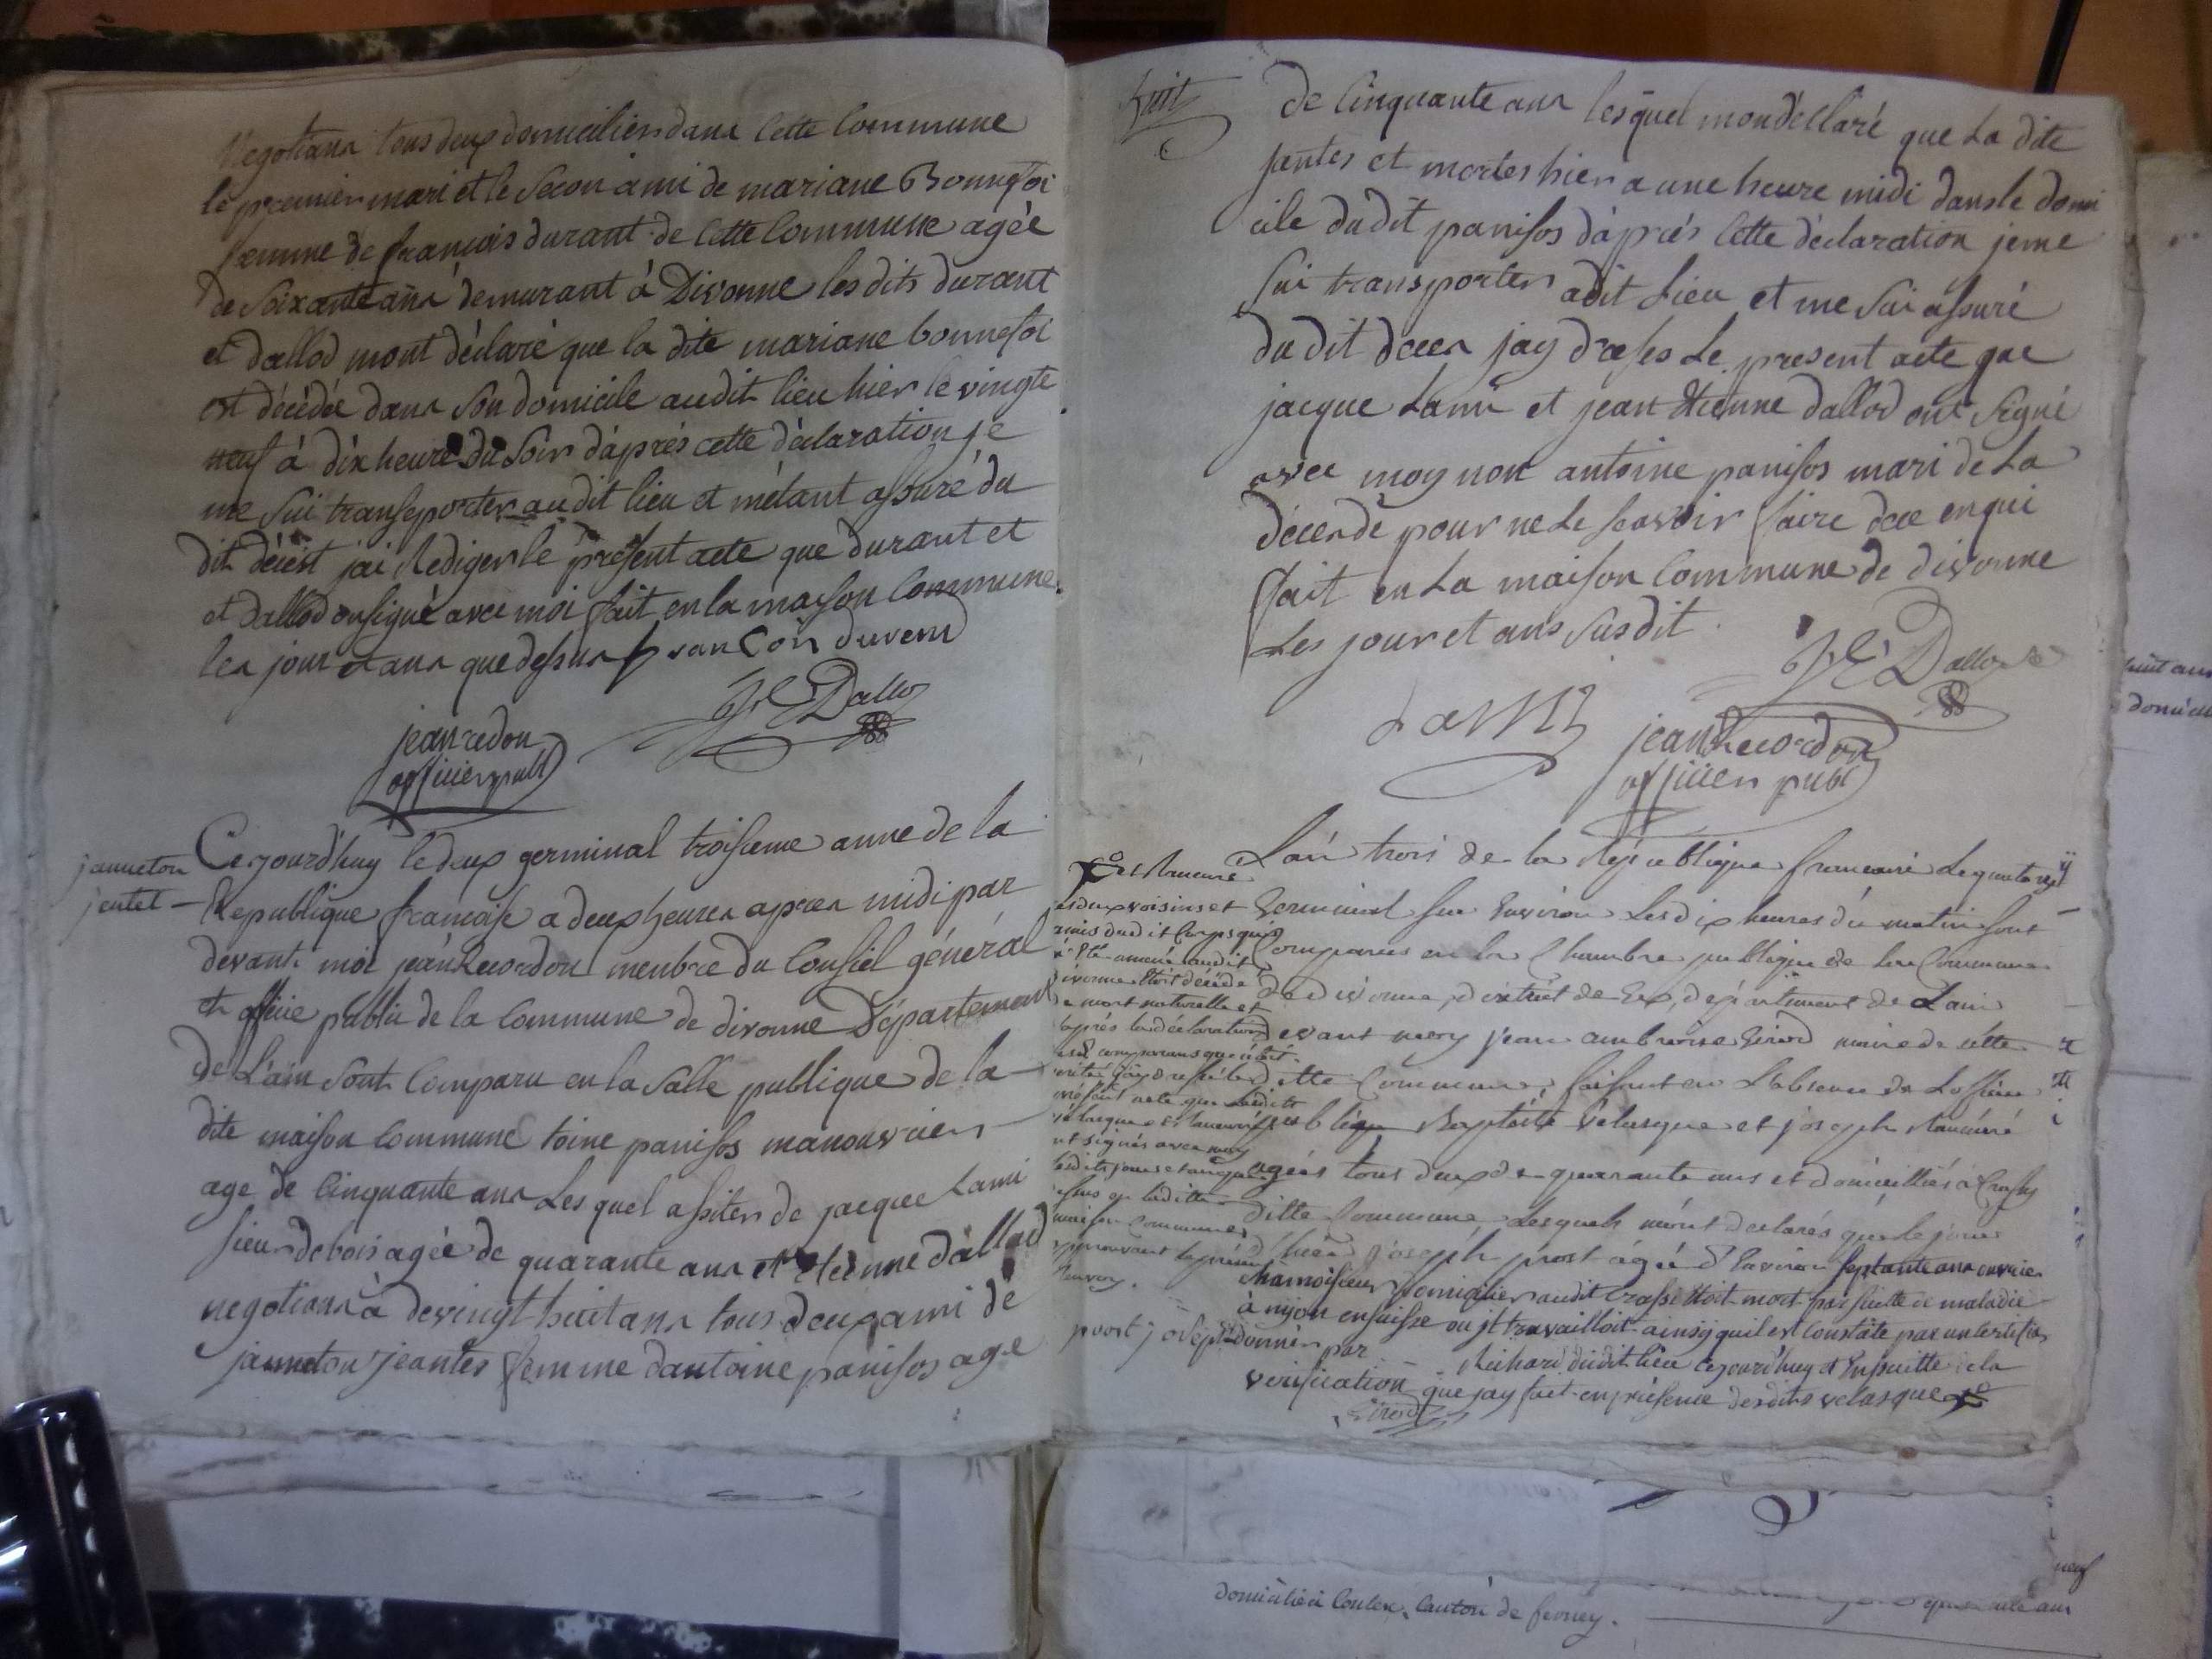 Negotiana tous deux domicilien dans cette commune
le premier mari et le secon ami de mariane Bonnefoi
femme de francois durant de cette commune agée
de soixante ans demurant à Divonne les dits durant
et dallod mont déclaré que la dite mariane bonnefoi
est décédée dans son domicile audit lieu hier le vingte
neuf à dix heure du soir d'après cette déclaration je
me sui transeporter audit lieu et métant assuré du
dit décest jai Rediger le présent acte que durant et
et dallod on signé avec moi fait en la maison commune
les jour et ans que dessus francois durend
JE Dallo
jean redon
officier publ
janneton
jentet
Cejourd'huy le deux germinal troisieme anne de la
Republique francaise a deux heures apres midi par
devant moi jean Recordon menbre du Consiel général
et officie public de la commune de divonne Département
de L'ain sont comparu en la salle publique de la
dite maison commune toine panisos manouvrier
age de cinquante ans Lesquel assiter de jacque Lami
sieur de bois agée de quarante ans et etienne dallod
negotiana a de vingt huit ans tous deux ami de
janneton jeantes femme dantoine panisos age
huit
de cinquante ans lesquel mon déclaré que La dite
jantes et mortes hier a une heure midi dans le domi
cile dudit panisos d'après cette déclaration je me
sui transporter adit Lieu et me sui assuré
du dit deces jay dresses Le present acte que
jacque Lami et jean Etienne dallod ont signé
avec moy non antoine panisos mari de La
décendé pour ne Le scavoir faire de ce enqui
fait en La maison commune de divonne
Les jour et ans susdit
JE Dallo
Lami
jean Recordon
officier publ
L'an trois de la République francaise Le quatorze
Germinal sur Environ Les dix heures du matin sont
Comparus en la Chambre publique de la Commune
de divonne, district de Gex, département de Lain
devant moy jean ambroise Girod maire de cette
ditte Commune, faisant en L'absence de Loficier
public Baptiste Velasque et joseph
agés tous deux de quarante ans et domicilliés à Crassy
ditte Commune, Lesquels m'ont declarés que le jour
d'hier joseph prost agé d'Environ septante ans ouvrier
Chamoiseur domicilier audit crassi Etoit mort par suitte de maladie
à nyon en suisse ou jl travailloit ainsy quil est constate par un certifica
donner par Richard dudit lieu cejourd'huy et Ensuitte de la
vérification que jay fait en présence desdits velasque
Girod
et
les deux voisins et
amis dudit corps qui
a Eté amené audit
divonne Etoit décédé
de mort naturelle et
d'après la déclaration
présent acte que lesdits
Velasque et
ont signés avec moy
lesdits jours et an que
dessus en laditte
maison commune,
approuvant
Renvoy.
prost joseph
huit ans
neuf
domicilié à Coulex, canton de ferney.
quarante ans